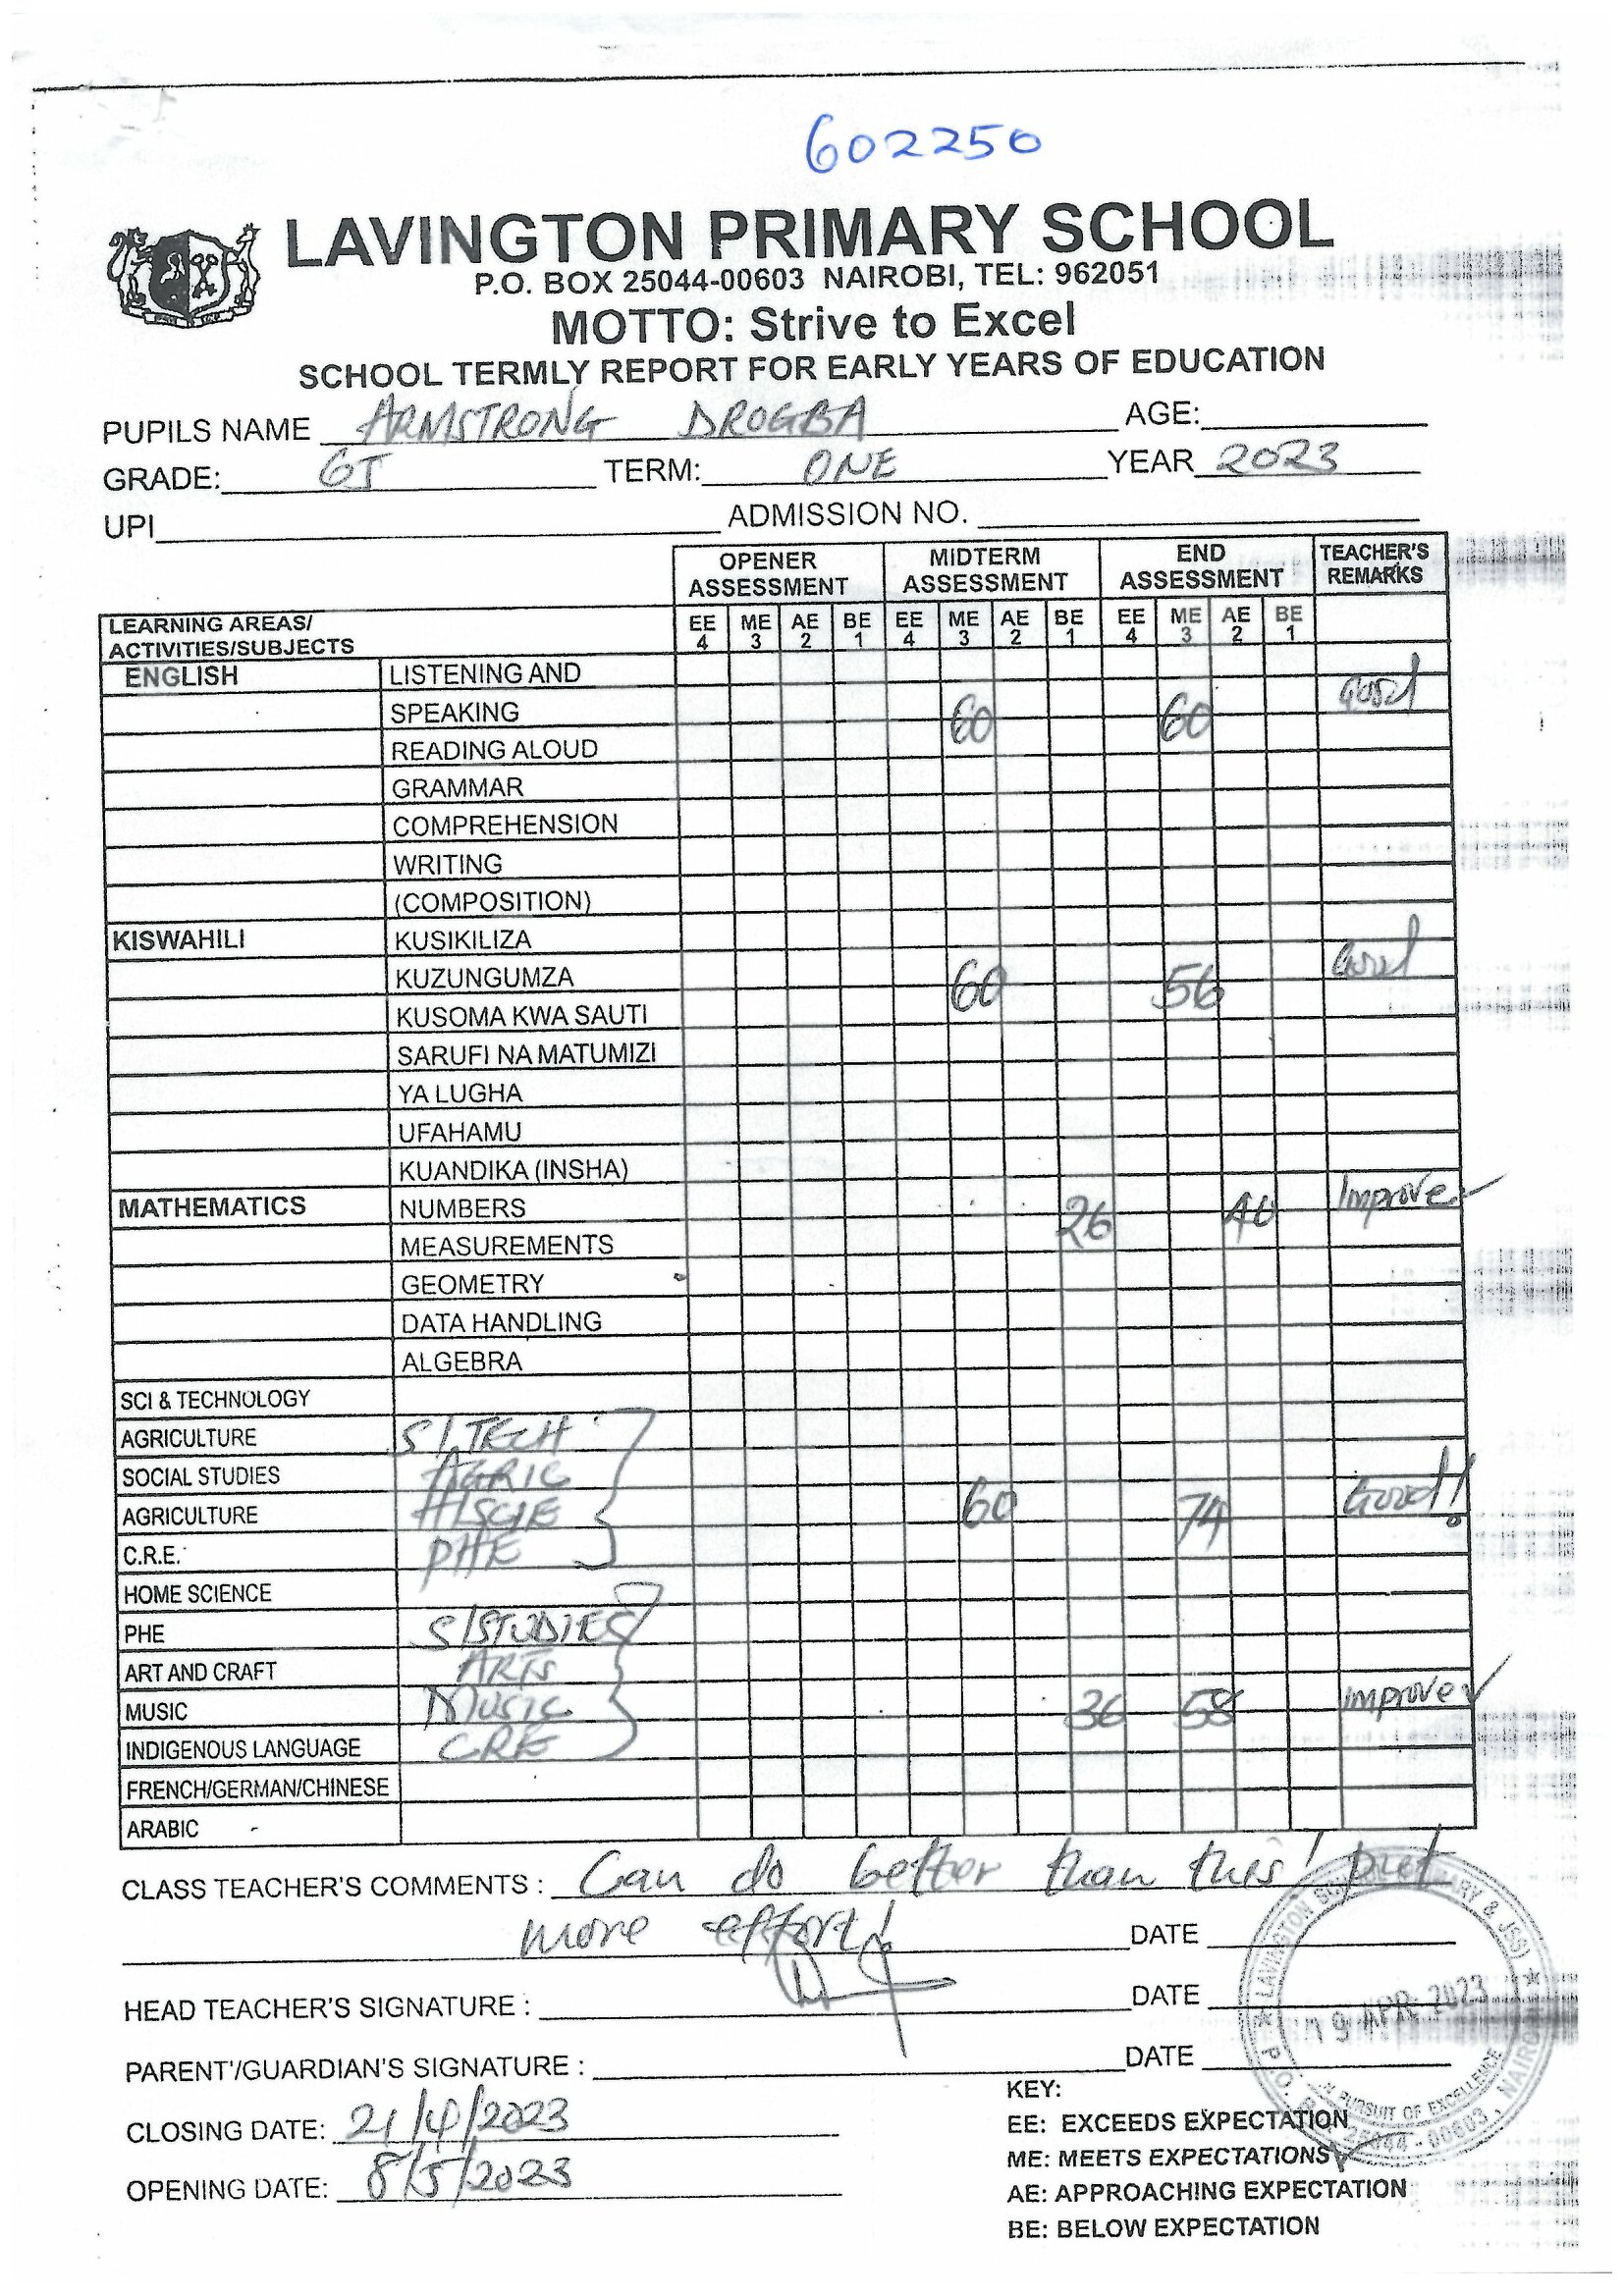 602250
LAVINGTON PRIMARY SCHOOL
P.O. BOX 25044-00603 NAIROBI, TEL: 962051
MOTTO: Strive to Excel
SCHOOL TERMLY REPORT FOR EARLY YEARS OF EDUCATION
PUPILS NAME ARMSTRONG DROGBA AGE:
GRADE: 6J TERM: ONE YEAR 2023
UPI ADMISSION NO.
OPENER ASSESSMENT MIDTERM ASSESSMENT END ASSESSMENT TEACHER'S REMARKS
LEARNING AREAS/ ACTIVITIES/SUBJECTS EE 4 ME 3 AE 2 BE 1 EE 4 ME 3 AE 2 BE 1 EE 4 ME 3 AE 2 BE 1
ENGLISH LISTENING AND Good
SPEAKING 60 60
READING ALOUD
GRAMMAR
COMPREHENSION
WRITING
(COMPOSITION)
KISWAHILI KUSIKILIZA Good
KUZUNGUMZA 60 56
KUSOMA KWA SAUTI
SARUFI NA MATUMIZI
YA LUGHA
UFAHAMU
KUANDIKA (INSHA)
MATHEMATICS NUMBERS 26 40 Improve
MEASUREMENTS
GEOMETRY
DATA HANDLING
ALGEBRA
SCI & TECHNOLOGY
AGRICULTURE S/TECH
SOCIAL STUDIES AGRIC
AGRICULTURE H/SCIE 60 74 Good!
C.R.E. PHE
HOME SCIENCE
PHE S/STUDIES
ART AND CRAFT ARTS
MUSIC MUSIC 36 58 improve
INDIGENOUS LANGUAGE CRE
FRENCH/GERMAN/CHINESE
ARABIC -
CLASS TEACHER'S COMMENTS : Can do better than this! put
more effort! DATE
HEAD TEACHER'S SIGNATURE : DATE
PARENT'/GUARDIAN'S SIGNATURE : DATE
CLOSING DATE: 21/4/2023
OPENING DATE: 8/5/2023
KEY:
EE: EXCEEDS EXPECTATION
ME: MEETS EXPECTATIONS
AE: APPROACHING EXPECTATION
BE: BELOW EXPECTATION
LAVINGTON PRIMARY & JSS
19 APR 2023
PURSUIT OF EXCELLENCE
P.O. 25044 - 00603, NAIROBI